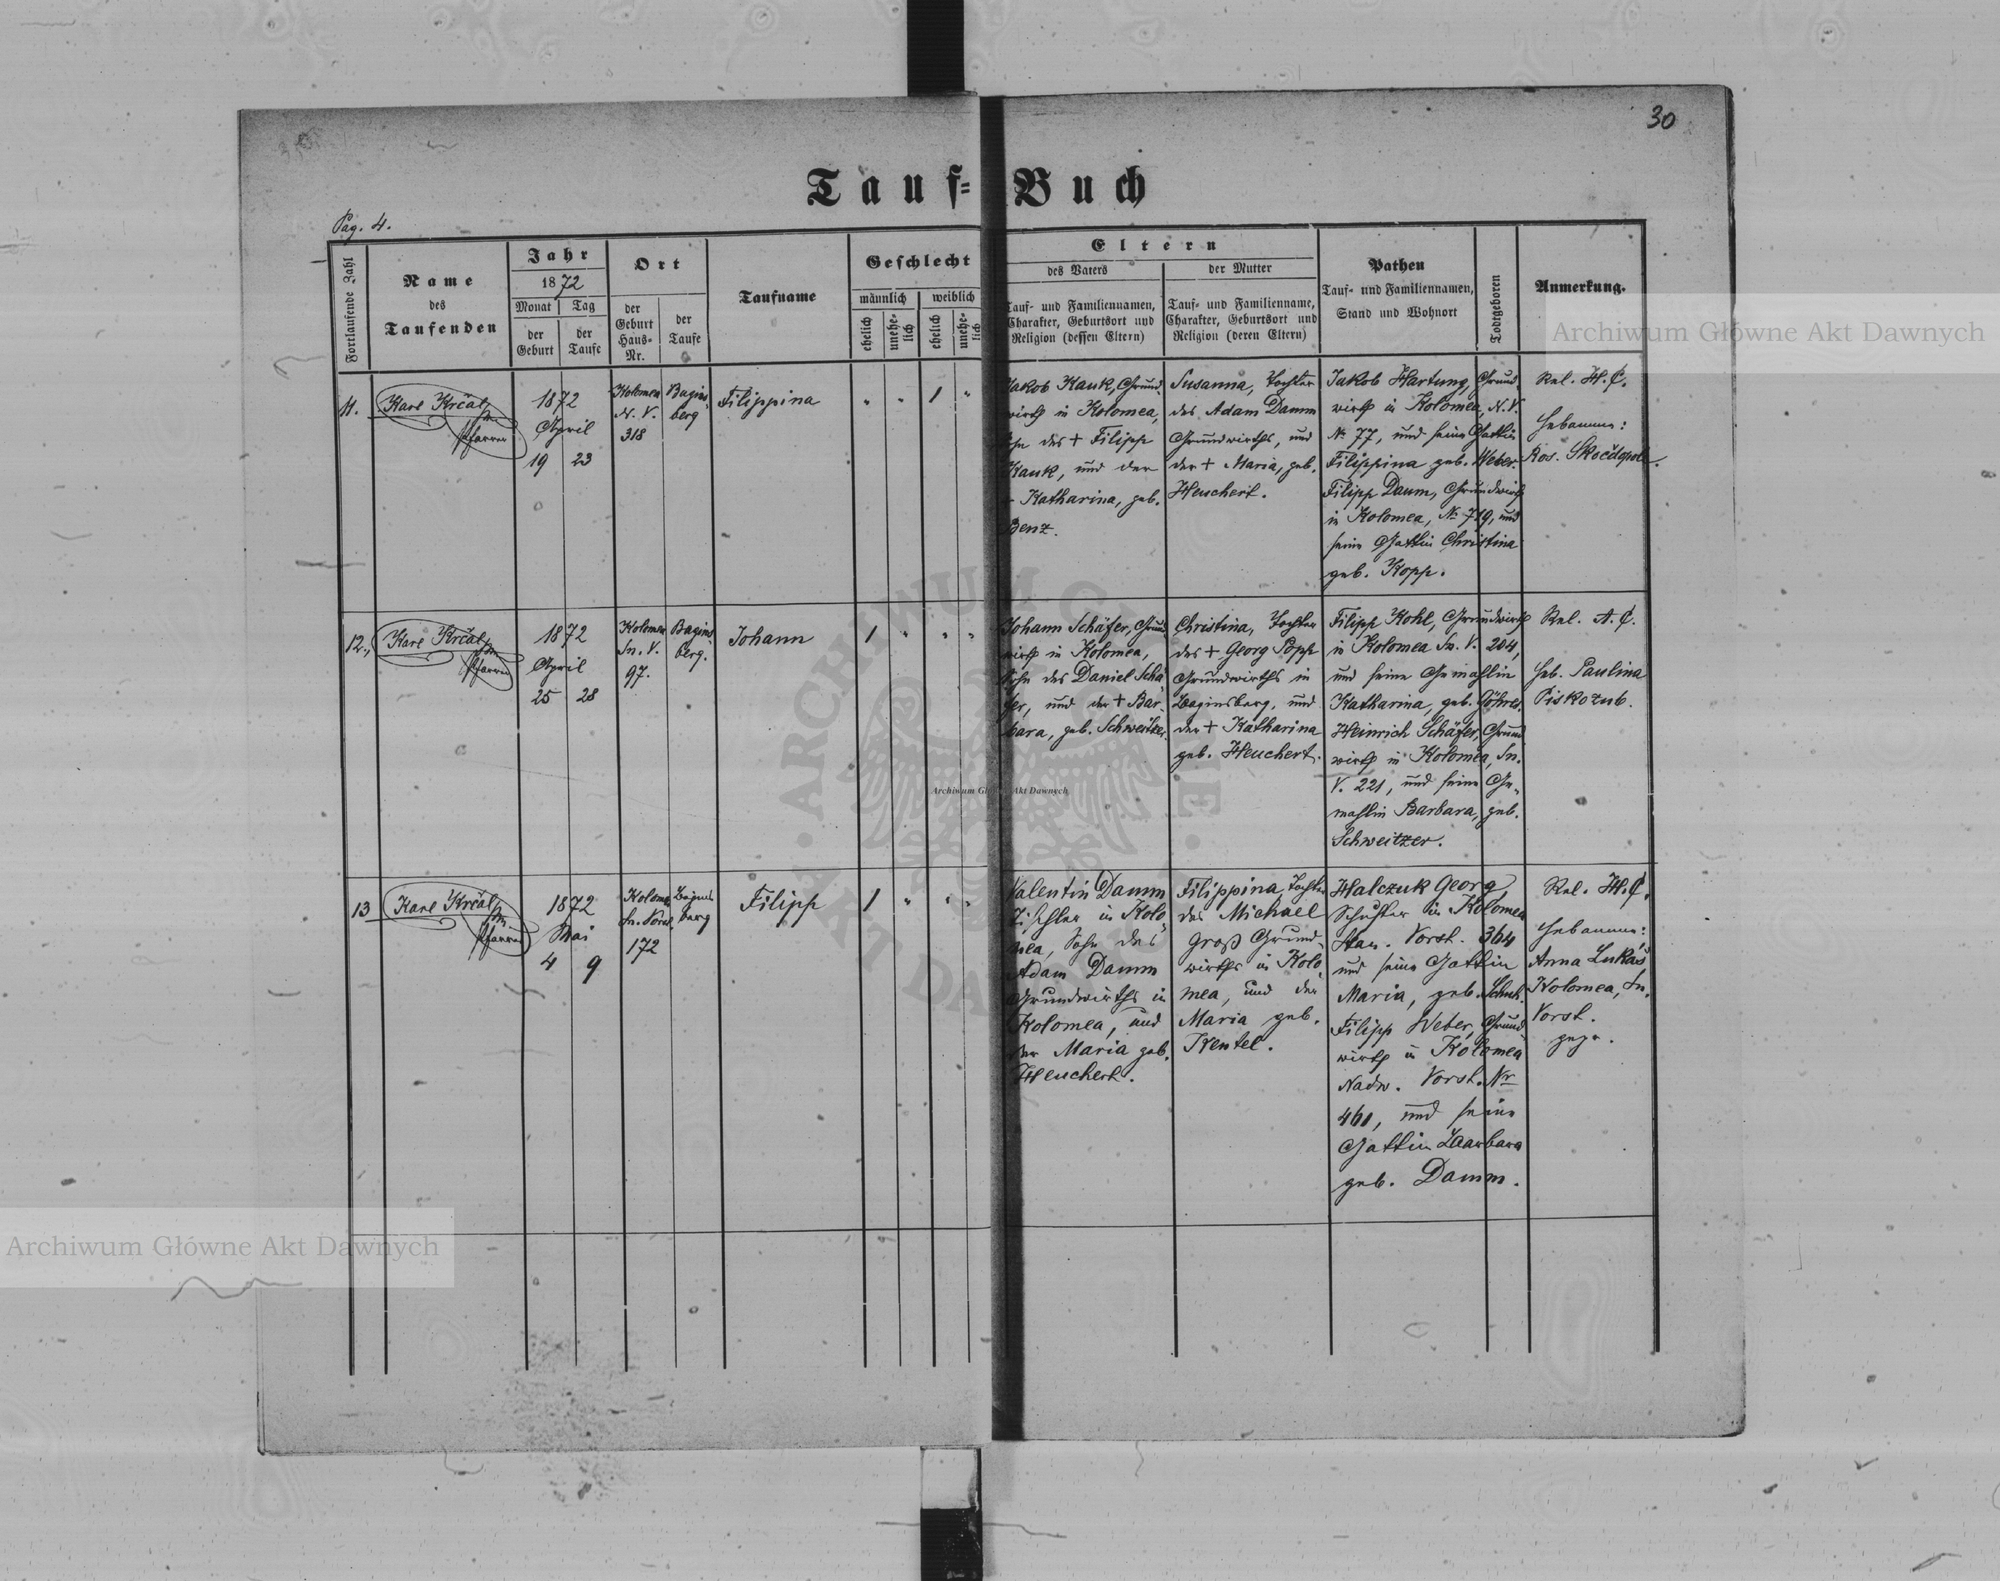 30
Tauf-Buch
Pag. 4.
Fortlaufende Zahl
Name
des
Taufenden
Jahr
1872
Monat
Tag
der
Geburt
der
Taufe
Ort
der
Geburt
Haus-
Nr.
der
Taufe
Taufname
Geschlecht
männlich
weiblich
ehelich
unehe-
lich
ehelich
unehe-
lich
Eltern
des Vaters
der Mutter
Tauf- und Familiennamen,
Charakter, Geburtsort und
Religion (dessen Eltern)
Tauf- und Familienname,
Charakter, Geburtsort und
Religion (deren Eltern)
Pathen
Tauf- und Familiennamen,
Stand und Wohnort
Todtgeboren
Anmerkung.
11.
Karl Krčal
Pfarrer
1872
April
19 23
Kolomea
N. V.
318
Bagins-
berg
Filippina
" " 1 "
Jakob Kauk, Grund-
wirth in Kolomea,
Sohn des + Filipp
Kauk, und der
+ Katharina, geb.
Benz.
Susanna, Tochter
des Adam Damm
Grundwirths, und
der + Maria, geb.
Heuchert.
Jakob Hartung, Grund-
wirth in Kolomea, N.V.
Nr 77, und seine Gattin
Filippina geb. Weber.
Filipp Daum, Grundwirth
in Kolomea, Nr 719, und
seine Gattin Christina
geb. Kopp.
Rel. H. C.
Hebamme:
Ros. Skočdopole.
12.
Karl Krčal
Pfarrer
1872
April
25 28
Kolomea
Sn. V.
97.
Bagins-
berg.
Johann
1 " " "
Johann Schäfer, Grund-
wirth in Kolomea,
Sohn des Daniel Schä-
fer, und der + Bar-
bara, geb. Schweitzer.
Christina, Tochter
des + Georg Popp
Grundwirths in
Baginsberg, und
der + Katharina
geb. Heuchert.
Filipp Kohl, Grundwirth
in Kolomea Sn. V. 204,
und seine Gemahlin
Katharina, geb.
Heinrich Schäfer, Grund-
wirth in Kolomea, Sn.
V. 221, und seine Ge-
mahlin Barbara, geb.
Schweitzer.
Rel. A. C.
Heb. Paulina
Piskozub.
13
Karl Krčal
Pfarrer
1872
Mai
4 9
Kolomea
Sn. Vorst.
172
Bagins-
berg
Filipp
1 " " "
Valentin Damm
Tischler in Kolo-
mea, Sohn des
Adam Damm
Grundwirths in
Kolomea, und
der Maria geb.
Heuchert.
Filippina, Tochter
des Michael
Groß Grund-
wirths in Kolo-
mea, und der
Maria geb.
Kentel.
Halczuk Georg,
Schuster in Kolomea
Stan. Vorst. 364
und seine Gattin
Maria, geb. Schuh.
Filipp Weber, Grund-
wirth in Kolomea
Nadw. Vorst. Nr
461, und seine
Gattin Barbara
geb. Damm.
Rel. H. C.
Hebamme:
Anna Lukaš
Kolomea, Sn.
Vorst.
Archiwum Główne Akt Dawnych
Archiwum Główne Akt Dawnych
Archiwum Główne Akt Dawnych
ARCHIWUM GŁÓWNE AKT DAWNYCH